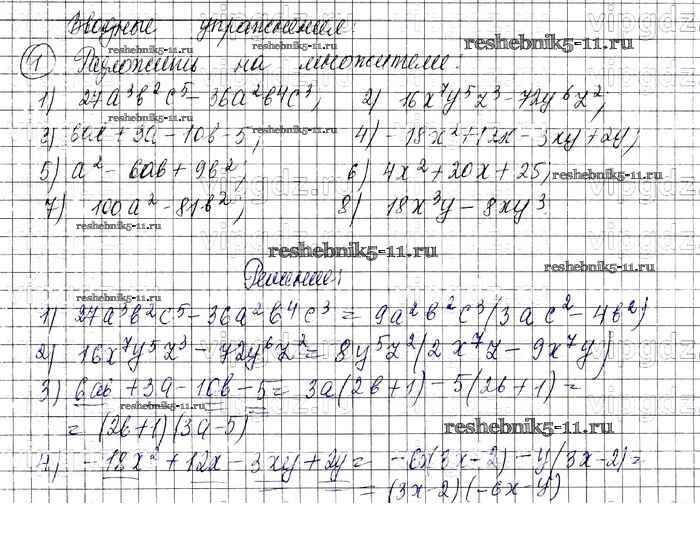 Вводные упражнения:
reshebnik5-11.ru
reshebnik5-11.ru
vipgdz.ru
1 Разложить на множители:
reshebnik5-11.ru
1) 27a³b²c⁵ - 36a²b⁴c³; 2) 16x⁷y⁵z³ - 72y⁶z²;
3) 6ab + 3a - 10b - 5; 4) - 18x² + 12x - 3xy + 2y;
reshebnik5-11.ru
5) a² - 6ab + 9b²; 6) 4x² + 20x + 25;
reshebnik5-11.ru
vipgdz.ru
7) 100a² - 81b²; 8) 18x³y - 8xy³
reshebnik5-11.ru
reshebnik5-11.ru
Решение:
reshebnik5-11.ru
reshebnik5-11.ru
1) 27a³b²c⁵ - 36a²b⁴c³ = 9a²b²c³(3ac² - 4b²)
2) 16x⁷y⁵z³ - 72y⁶z² = 8y⁵z²(2x⁷z - 9x⁷y)
3) 6ab + 3a - 10b - 5 = 3a(2b+1) - 5(2b+1) =
reshebnik5-11.ru
= (2b+1)(3a-5)
reshebnik5-11.ru
4) - 18x² + 12x - 3xy + 2y = -6x(3x-2) - y(3x-2) =
= (3x-2)(-6x-y)